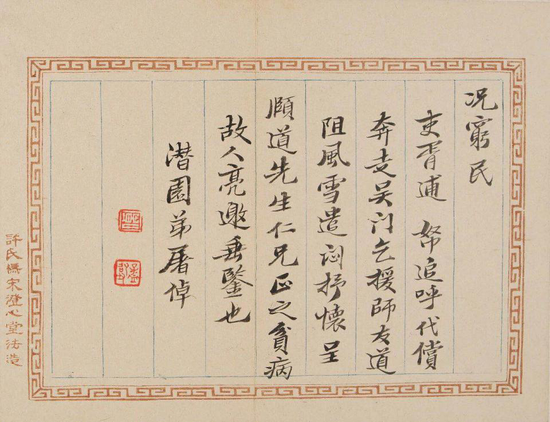 况窮民
吏胥逋帑追呼代償
奔走吴门乞援師友道
阻風雪遣闷抒懷呈
頋道先生仁兄正之貧病
故人亮邀垂鑒也
潛園弟屠倬
許氏橅宋澄心堂法造